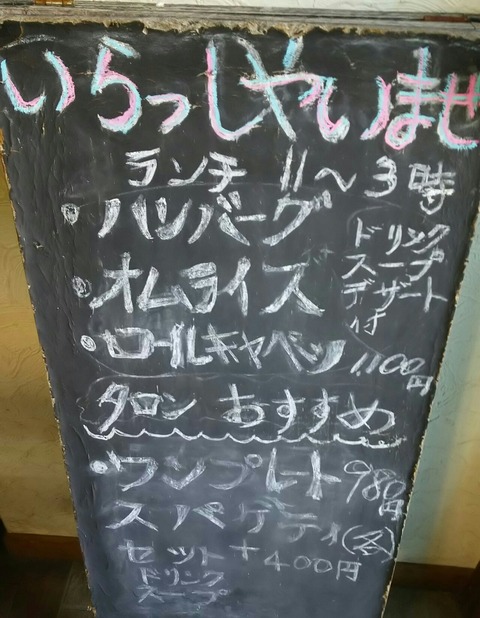 いらっしゃいませ
ランチ 11〜3時
・ハンバーグ
・オムライス
・ロールキャベツ
ドリンク
スープ
デザート
付
1,100円
タロン おすすめ
・ワンプレート 980円
スパゲティ(各)
セット+400円
ドリンク
スープ